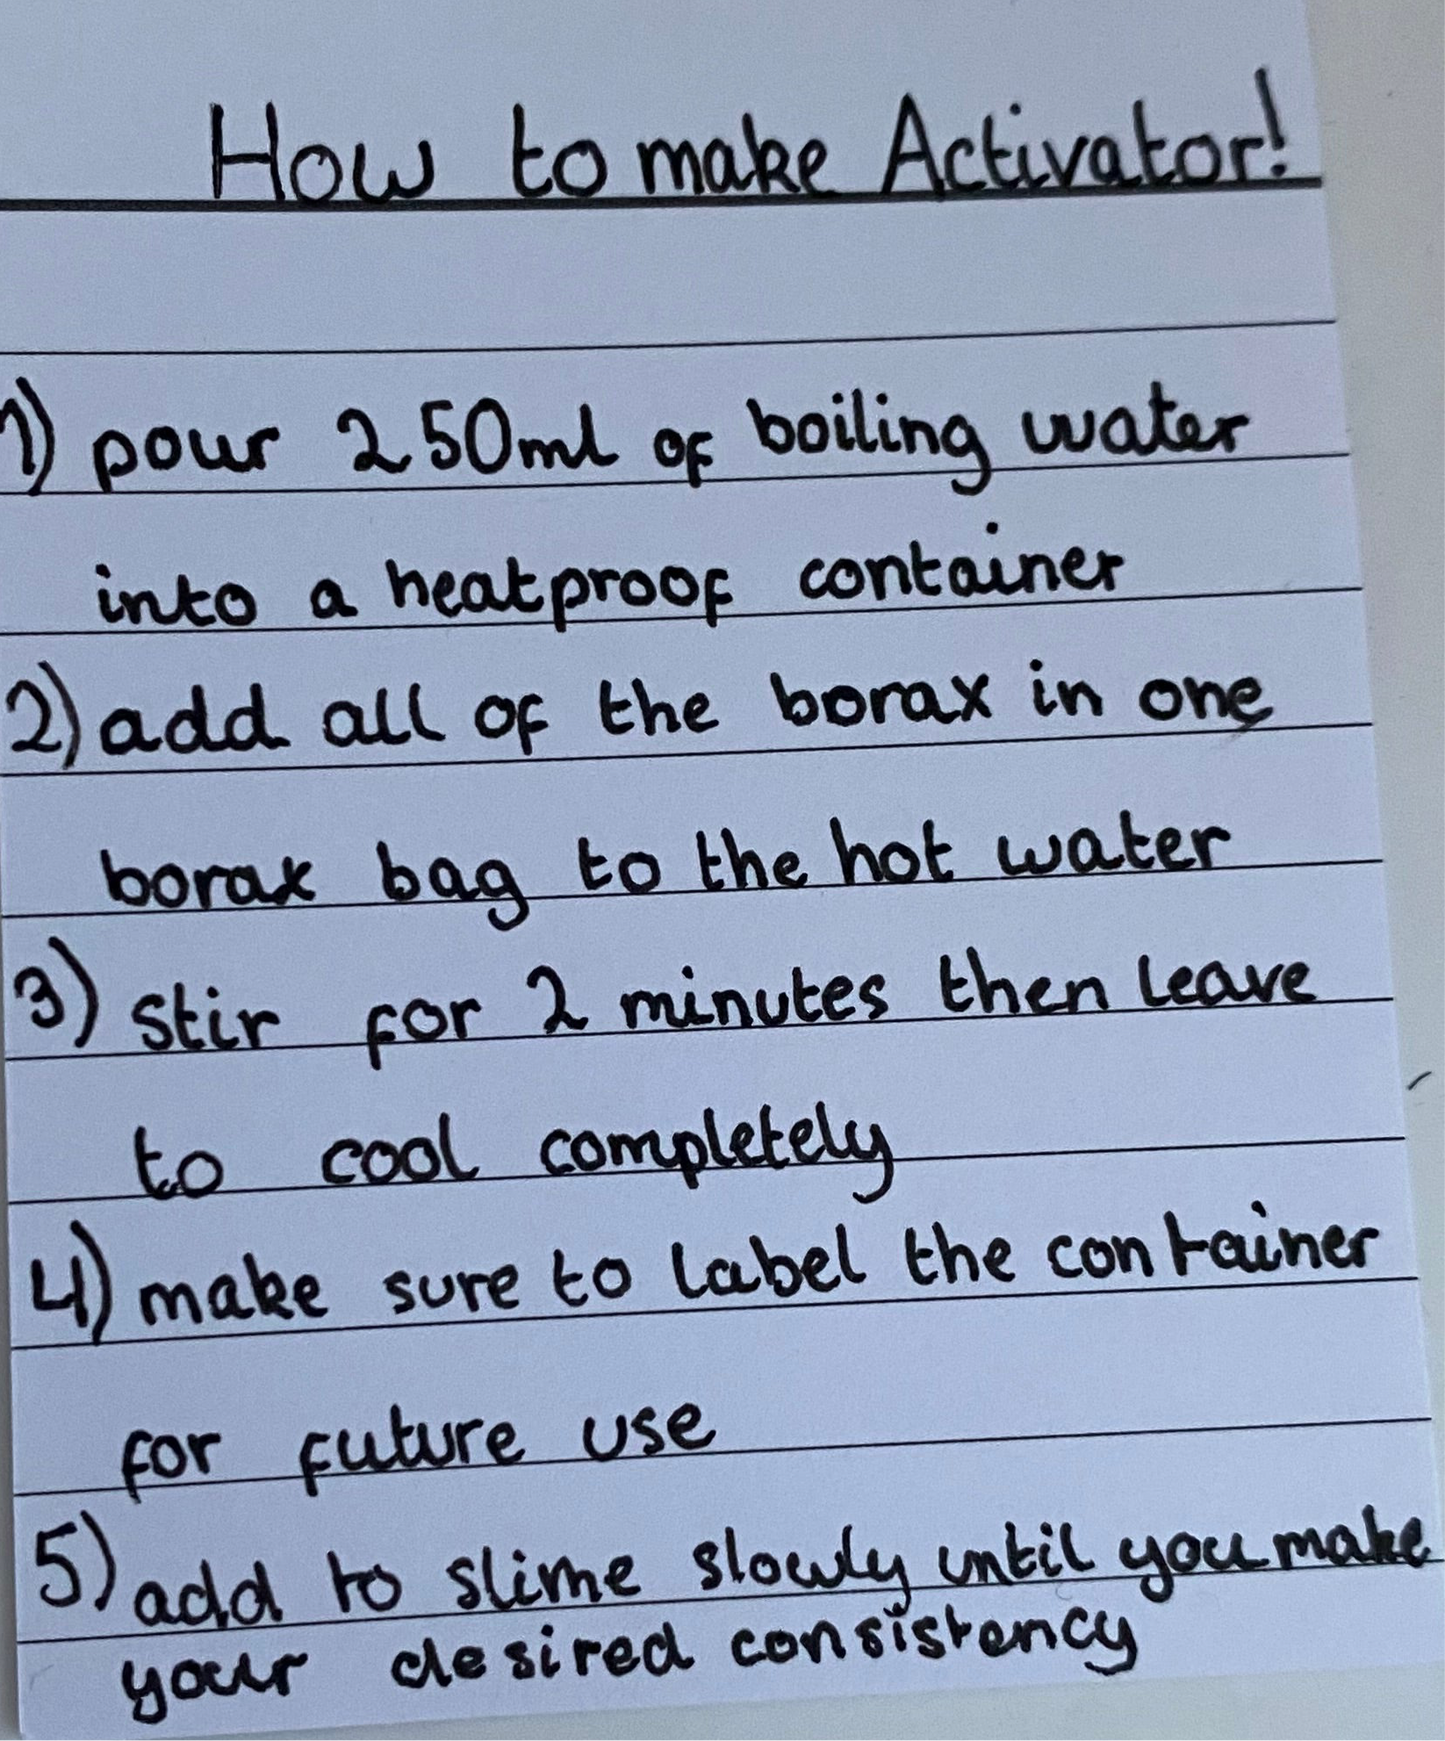 How to make Activator!
1) pour 250ml of boiling water
into a heatproof container
2) add all of the borax in one
borax bag to the hot water
3) stir for 2 minutes then leave
to cool completely
4) make sure to label the container
for future use
5) add to slime slowly until you make
your desired consistency